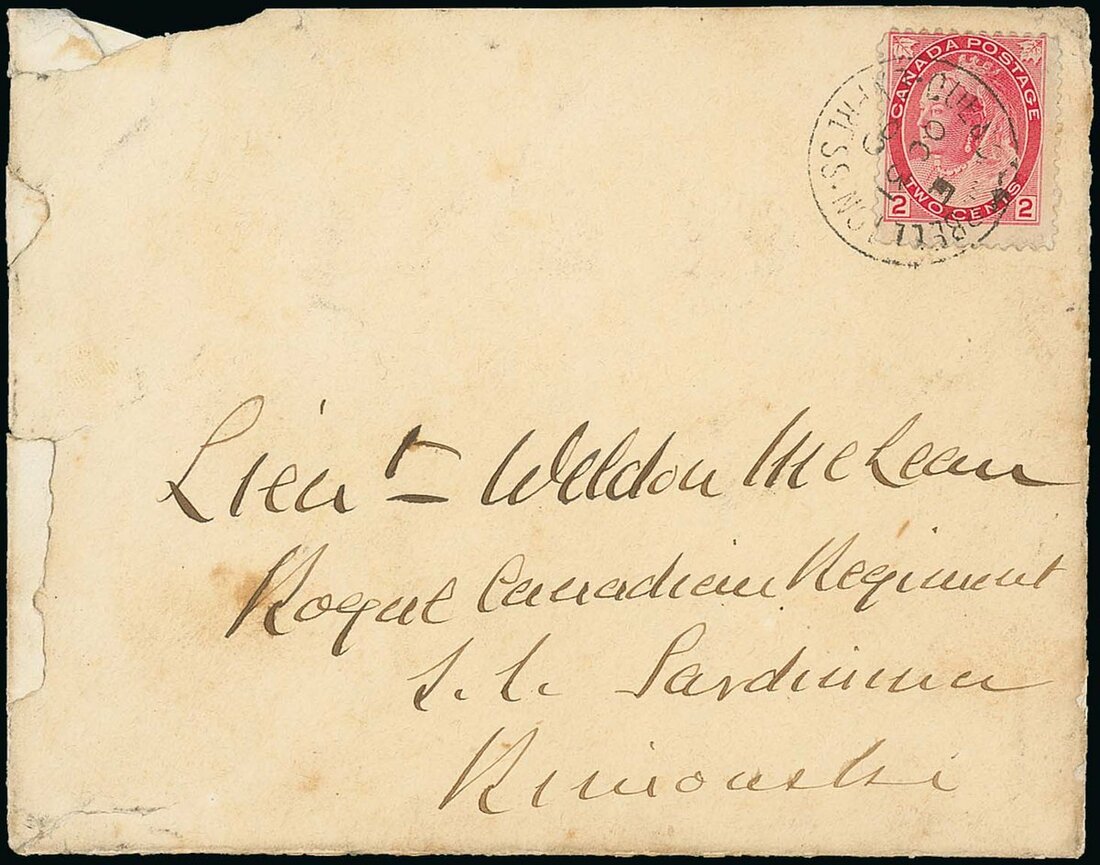 CANADA POSTAGE
2 TWO CENTS 2
Lieut Weldon McLean
Royal Canadian Regiment
S.S. Sardinian
Rimouski